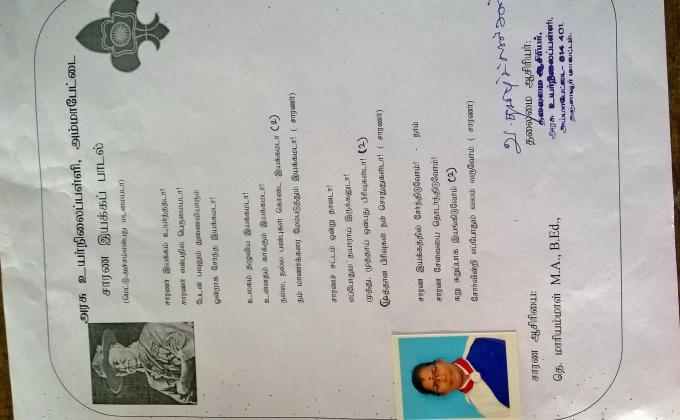 அரசு உயர்நிலைப்பள்ளி, அம்மாபேட்டை
சாரண இயக்கப் பாடல்
சாரணர் இயக்கம் உயர்ந்ததடா!
சாரணர் என்பதில் பெருமையடா!
பேடன் பவலும் துணைவியாரும்
ஒன்றாக சேர்ந்த இயக்கமடா!
உலகம் தழுவிய இயக்கமடா!
உள்ளதும் காக்கும் இயக்கமடா!
நல்ல, நல்ல பண்புகள் கொண்ட இயக்கமடா (2)
நம் மாணாக்கரை மேம்படுத்தும் இயக்கமடா! ( சாரணர்)
சாரணச் சட்டம் ஒன்று தானடா!
எப்போதும் தயாராய் இருக்கணுடா!
முத்து, முத்தாய் ஒன்பது பிரிவுகள்டா! (2)
(முத்தான பிரிவுகள் நம் சொத்துகள்டா! ( சாரணர்)
சாரண இயக்கத்தில் சேர்ந்திடுவோம்! - நாம்
சாரண சேவையை தொடர்ந்திடுவோம்!
சுறு சுறுப்பாக இயங்கிடுவோம் (2)
சோர்வின்றி எப்போதும் வலம் வருவோம் ( சாரணர்)
சாரண ஆசிரியை:
தெ. மாரியம்மாள் M.A., B.Ed.,
தலைமை ஆசிரியர்:
தலைமை ஆசிரியர்,
அரசு உயர்நிலைப்பள்ளி,
அம்மாபேட்டை- 614 401.
தஞ்சாவூர் மாவட்டம்.